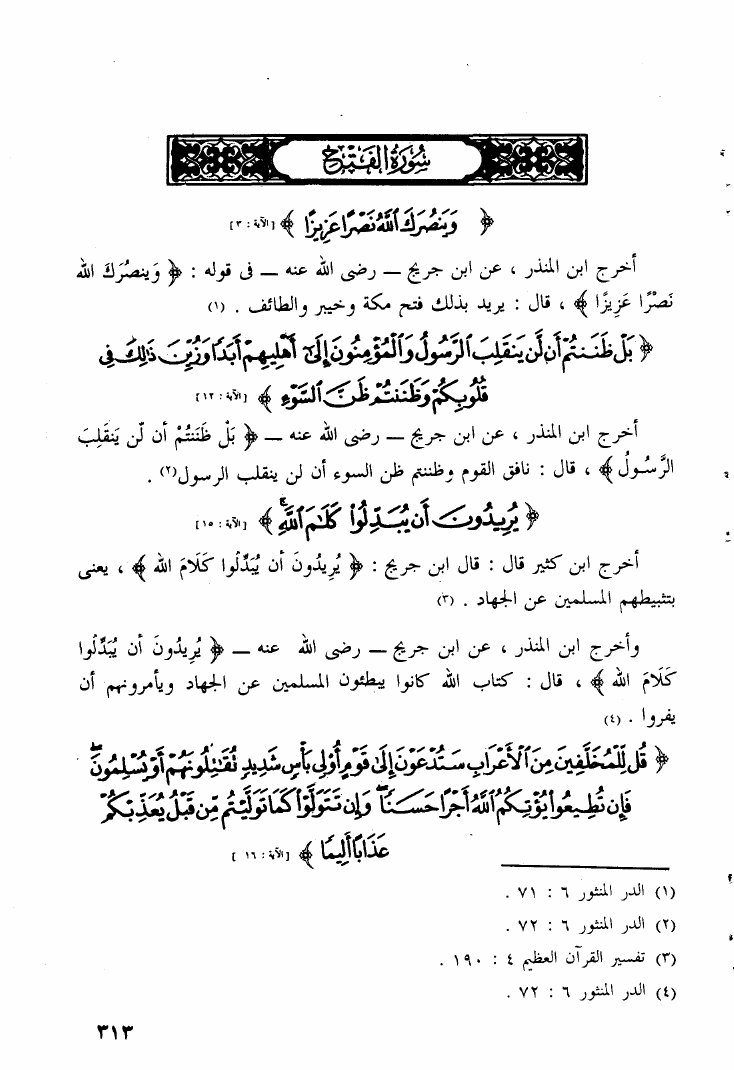 سُورَةُ الفَتْح
﴿ وَيَنصُرَكَ ٱللَّهُ نَصْرًا عَزِيزًا ﴾ [الآية : ٣]
أخرج ابن المنذر ، عن ابن جريج — رضى الله عنه — فى قوله : ﴿ وَينصُرَكَ الله
نَصْرًا عَزِيزًا ﴾ ، قال : يريد بذلك فتح مكة وخيبر والطائف . (١)
﴿ بَلْ ظَنَنتُمْ أَن لَّن يَنقَلِبَ ٱلرَّسُولُ وَٱلْمُؤْمِنُونَ إِلَىٰٓ أَهْلِيهِمْ أَبَدًا وَزُيِّنَ ذَٰلِكَ فِى
قُلُوبِكُمْ وَظَنَنتُمْ ظَنَّ ٱلسَّوْءِ ﴾ [الآية : ١٢]
أخرج ابن المنذر ، عن ابن جريج — رضى الله عنه — ﴿ بَلْ ظَنَنتُمْ أن لّن يَنقَلِبَ
الرَّسُولُ ﴾ ، قال : نافق القوم وظننتم ظن السوء أن لن ينقلب الرسول(٢) .
﴿ يُرِيدُونَ أَن يُبَدِّلُوا۟ كَلَٰمَ ٱللَّهِ ﴾ [الآية : ١٥]
أخرج ابن كثير قال : قال ابن جريج : ﴿ يُرِيدُونَ أن يُبَدِّلُوا كَلَامَ الله ﴾ ، يعنى
بتثبيطهم المسلمين عن الجهاد . (٣)
وأخرج ابن المنذر ، عن ابن جريج — رضى الله عنه — ﴿ يُرِيدُونَ أن يُبَدِّلُوا
كَلَامَ الله ﴾ ، قال : كتاب الله كانوا يبطئون المسلمين عن الجهاد ويأمرونهم أن
يفروا . (٤)
﴿ قُل لِّلْمُخَلَّفِينَ مِنَ ٱلْأَعْرَابِ سَتُدْعَوْنَ إِلَىٰ قَوْمٍ أُو۟لِى بَأْسٍ شَدِيدٍ تُقَٰتِلُونَهُمْ أَوْ يُسْلِمُونَ ۖ
فَإِن تُطِيعُوا۟ يُؤْتِكُمُ ٱللَّهُ أَجْرًا حَسَنًا ۖ وَإِن تَتَوَلَّوْا۟ كَمَا تَوَلَّيْتُم مِّن قَبْلُ يُعَذِّبْكُمْ
عَذَابًا أَلِيمًا ﴾ [الآية : ١٦ ]
(١) الدر المنثور ٦ : ٧١ .
(٢) الدر المنثور ٦ : ٧٢ .
(٣) تفسير القرآن العظيم ٤ : ١٩٠ .
(٤) الدر المنثور ٦ : ٧٢ .
٣١٣